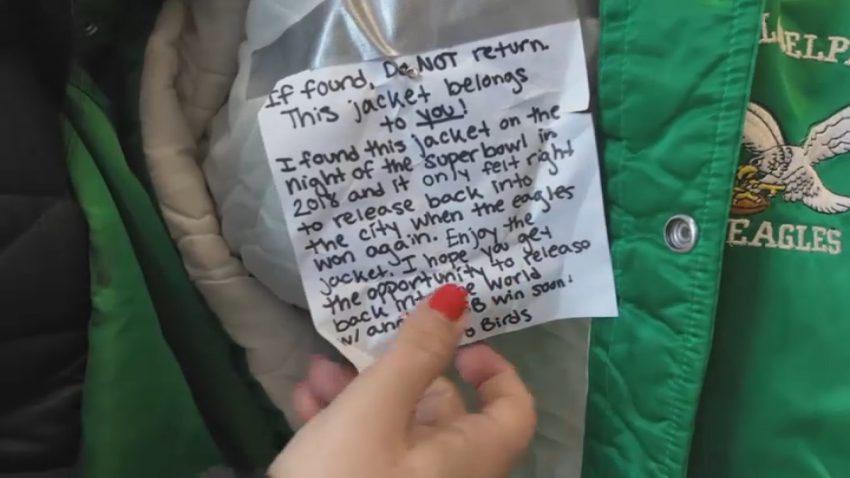 If found, Do NOT return.
This jacket belongs
to you!
I found this jacket on the
night of the superbowl in
2018 and it only felt right
to release back into
the city when the eagles
won again. Enjoy the
jacket. I hope you get
the opportunity to release
back World
w/ B win soon!
Birds
EAGLES